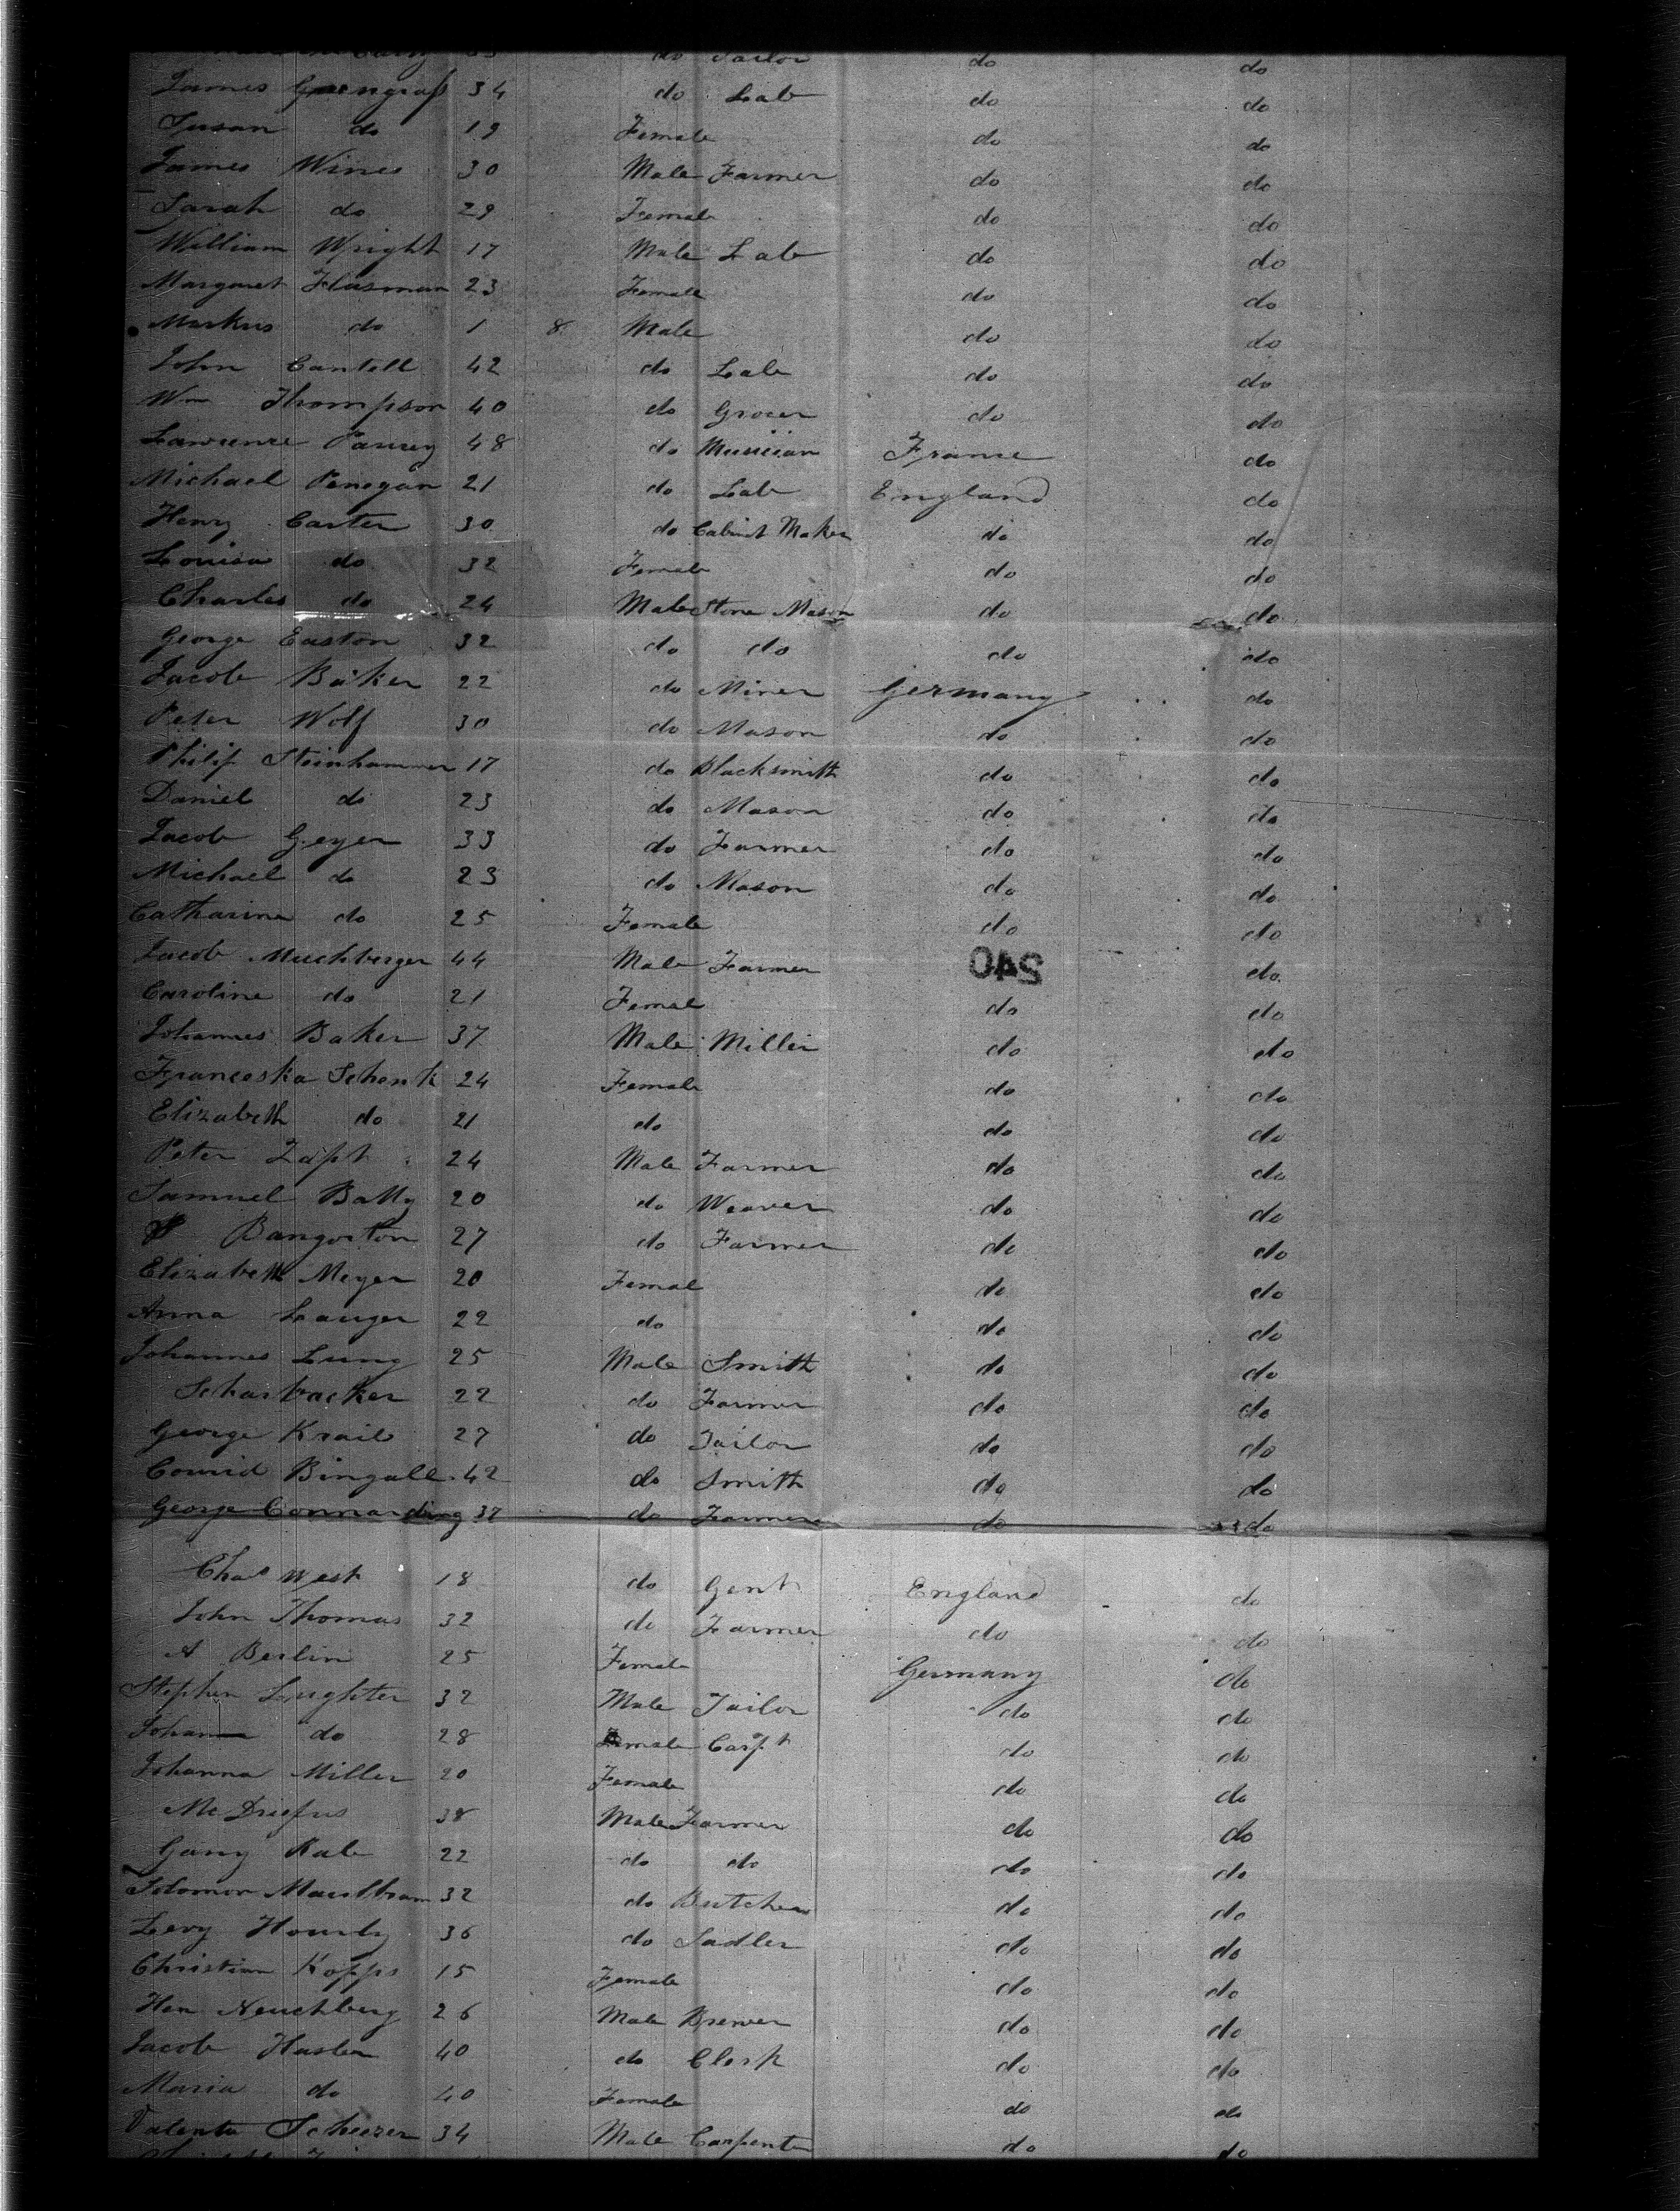 do Tailor do do
James 34 do Lab do do
Susan do 19 Female do do
James Wines 30 Male Farmer do do
Sarah do 29 Female do do
William Wright 17 Male Lab do do
Margaret Hasman 23 Female do do
Markus do 1 8 Male do do
John Cantell 42 do Lab do do
Wm Thompson 40 do Grocer do do
Lawrence 48 do Musician France do
Michael Penegan 21 do Lab England do
Henry Carter 30 do Cabinet Maker do do
Louisa do 32 Female do do
Charles do 24 Male Stone Mason do do
George Easton 32 do do do do
Jacob Baker 22 do Miner Germany do
Peter Wolf 30 do Mason do do
Philip Steinhammer 17 do Blacksmith do do
Daniel do 23 do Mason do do
Jacob Geyer 33 do Farmer do do
Michael do 23 do Mason do do
Catharine do 25 Female do do
Jacob Muchberger 44 Male Farmer 540 do
Caroline do 21 Female do do
Johannes Baker 37 Male Miller do do
Franceska Schenk 24 Female do do
Elizabeth do 21 do do do
Peter Zapt 24 Male Farmer do do
Samuel Batty 20 do Weaver do do
Bangorton 27 do Farmer do do
Elizabeth Meyer 20 Femal do do
Anna Lauger 22 do do do
Johannes Lung 25 Male Smith do do
Scharbacker 22 do Farmer do do
George Krail 27 do Tailor do do
Conrid Bingall 42 do Smith do do
George Connarding 37 do Farmer do do
Chas West 18 do Gent England do
John Thomas 32 do Farmer do do
A Berlin 25 Female Germany do
Stephen Lughter 32 Male Tailor do do
Johan do 28 male Carpt do do
Johanna Miller 20 Female do do
Mc Driefus 38 Male Farmer do do
Gany Kale 22 do do do do
Solomon 32 do Butcher do do
Levy Hourly 36 do Sadler do do
Christian Kopps 15 Female do do
Hen Neuchberg 26 Male Brewer do do
Jacob Hasler 40 do Clerk do do
Maria do 40 Female do do
Valentu Scheezer 34 Male Carpenter do do